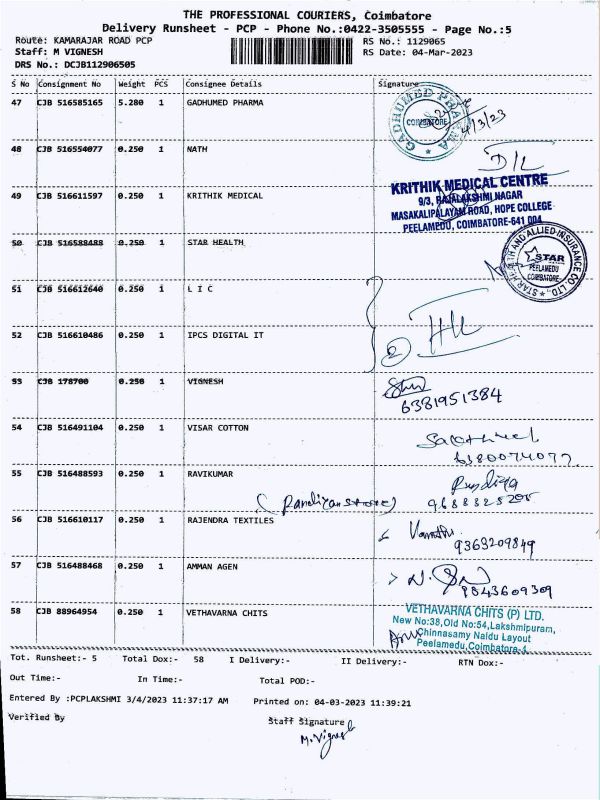 THE PROFESSIONAL COURIERS, Coimbatore
Delivery Runsheet - PCP - Phone No.:0422-3505555 - Page No.:5
Route: KAMARAJAR ROAD PCP
RS No.: 1129065
Staff: M VIGNESH
RS Date: 04-Mar-2023
DRS No.: DCJB112906505
S No Consignment No Weight PCS Consignee Details Signature
47 CJB 516585165 5.280 1 GADHUMED PHARMA
GADHUMED PHARMA COIMBATORE
4/3/23
48 CJB 516554077 0.250 1 NATH
49 CJB 516611597 0.250 1 KRITHIK MEDICAL
KRITHIK MEDICAL CENTRE
9/3, RAJALAKSHMI NAGAR
MASAKALIPALAYAM ROAD, HOPE COLLEGE
PEELAMEDU, COIMBATORE-641 004
50 CJB 516588488 0.250 1 STAR HEALTH
STAR HEALTH AND ALLIED INSURANCE CO. LTD.,
STAR
PEELAMEDU
COIMBATORE
51 CJB 516612640 0.250 1 L I C
52 CJB 516610486 0.250 1 IPCS DIGITAL IT
2
53 CJB 178700 0.250 1 VIGNESH
6381951384
54 CJB 516491104 0.250 1 VISAR COTTON
6380074077
55 CJB 516488593 0.250 1 RAVIKUMAR
(Pandiyan store)
56 CJB 516610117 0.250 1 RAJENDRA TEXTILES
9363209849
57 CJB 516488468 0.250 1 AMMAN AGEN
9843609309
58 CJB 88964954 0.250 1 VETHAVARNA CHITS
VETHAVARNA CHITS (P) LTD.
New No:38,Old No:54,Lakshmipuram,
Chinnasamy Naidu Layout
Peelamedu,Coimbatore-4
Tot. Runsheet:- 5 Total Dox:- 58 I Delivery:- II Delivery:- RTN Dox:-
Out Time:- In Time:- Total POD:-
Entered By :PCPLAKSHMI 3/4/2023 11:37:17 AM Printed on: 04-03-2023 11:39:21
Verified By Staff Signature
M.Vignesh